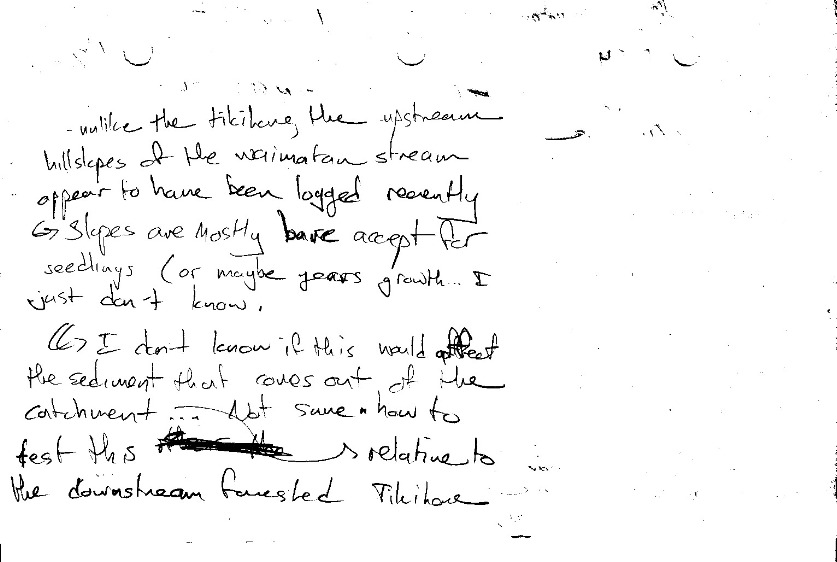 - unlike the tikihore, the upstream
hillslopes of the waimatau stream
appear to have been logged recently
↳ Slopes are mostly bare accept for
seedlings (or maybe years growth... I
just don't know.
↳ I don't know if this would affect
the sediment that comes out of the
catchment ... Not sure how to
test this → relative to
the downstream forested Tikihore